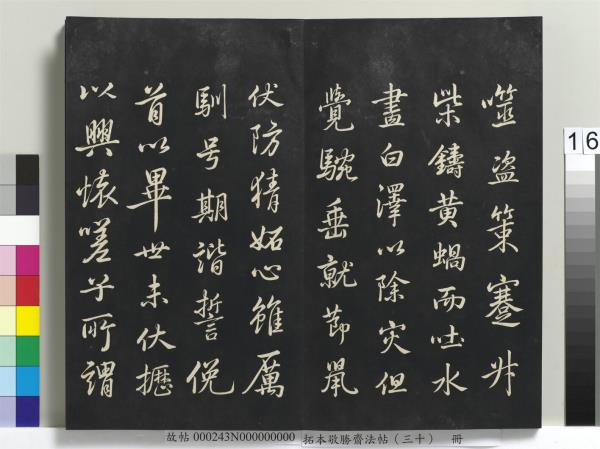 噬盜策蹇步
柴鑄黃蝸而吐水
畫白澤以除灾但
覺騕垂就節鼠
伏防猜妬心雖厲
馴号期諧誓俛
首以畢世未伏攊
以興懷嗟乎所謂
16
故帖000243N000000000 拓本敬勝齋法帖（三十） 冊